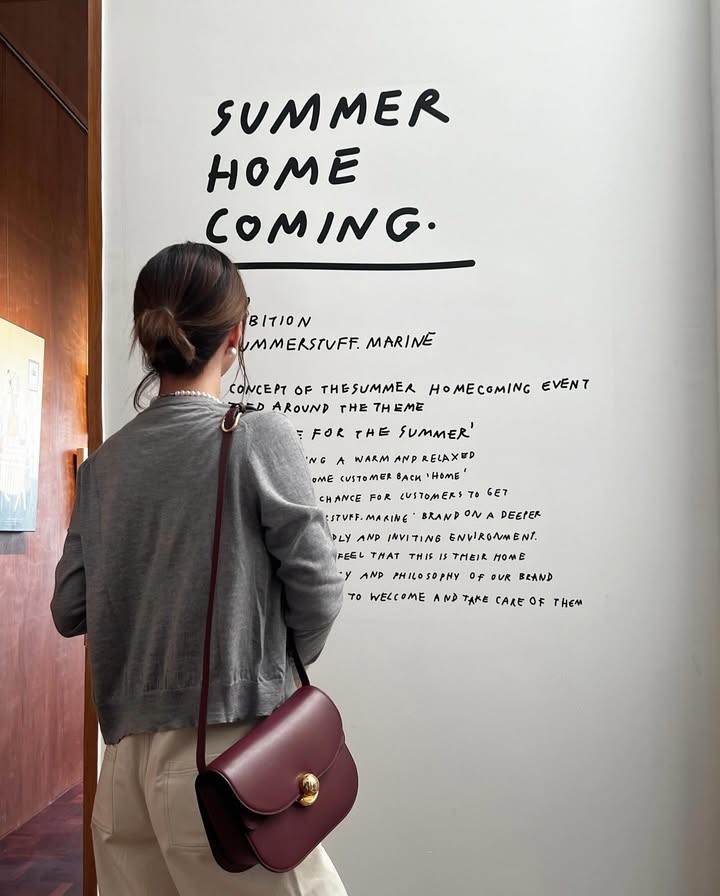 SUMMER
HOME
COMING.
BITION
UMMERSTUFF. MARINE
CONCEPT OF THE SUMMER HOMECOMING EVENT
AROUND THE THEME
FOR THE SUMMER'
A WARM AND RELAXED
OME CUSTOMER BACK 'HOME'
CHANCE FOR CUSTOMERS TO GET
RSTUFF. MARINE' BRAND ON A DEEPER
DLY AND INVITING ENVIRONMENT.
FEEL THAT THIS IS THEIR HOME
Y AND PHILOSOPHY OF OUR BRAND
TO WELCOME AND TAKE CARE OF THEM